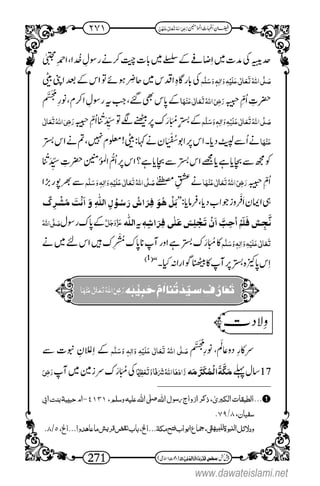 فیضانِ اُمہات المؤمنین رَضِیَ اللہُ تَعَالٰی عَنْہُنَّ ۲۷۱
حدیبیہ کی مدت میں اضافے کے سلسلے میں بات چیت کرنے رسولِ خُدا، احمدِ مجتبیٰ
صَلَّی اللہُ تَعَالٰی عَلَیْہِ وَاٰلِہٖ وَسَلَّم کی بارگاہِ اقدس میں حاضر ہوئے تو اس کے بعد اپنی بیٹی
حضرتِ اُمِّ حبیبہ رَضِیَ اللہُ تَعَالٰی عَنْہَا کے پاس بھی گئے، جب یہ رسولِ اکرم، نورِ مُجَسَّم
صَلَّی اللہُ تَعَالٰی عَلَیْہِ وَاٰلِہٖ وَسَلَّم کے بسترِ مُبارَک پر بیٹھنے لگے تو سیِّدتنا اُمِّ حبیبہ رَضِیَ اللہُ تَعَالٰی
عَنْہَا نے اُسے لپیٹ دیا۔ اس پر ابوسُفیان نے کہا: بیٹی! نہیں معلوم! تم نے اس بستر
کو مجھ سے بچایا ہے یا مجھے اس بستر سے بچایا ہے؟ اس پر اُمُّ المؤمنین حضرتِ سیِّدتنا
اُمِّ حبیبہ رَضِیَ اللہُ تَعَالٰی عَنْہَا نے عشقِ مصطفٰے صَلَّی اللہُ تَعَالٰی عَلَیْہِ وَاٰلِہٖ وَسَلَّم سے بھرپور بڑا
ہی ایمان افروز جواب دیا، فرمایا: ”بَلْ ھُوَ فِرَاشُ رَسُوْلِ اللہِ وَ اَنْتَ امْرُؤٌ مُشْرِکٌ
نَجِسٌ فَلَمْ اُحِبَّ اَنْ تَجْلِسَ عَلٰی فِرَاشِہٖ یہ اللہ عَزَّوَجَلَّ کے پاک رسول صَلَّی اللہُ
تَعَالٰی عَلَیْہِ وَاٰلِہٖ وَسَلَّم کا مُبارَک بستر ہے اور آپ ناپاک مُشْرِک ہیں اس لئے میں نے
اِس پاکیزہ بستر پر آپ کا بیٹھنا گوارا نہ کیا۔“ (1)
تعارُفِ سیِّدَتُنا اُمِّ حبیبہ رَضِیَ اللہُ تَعَالٰی عَنْہَا
وِلادت
سرکارِ دو عالَم، نورِ مُجَسَّم صَلَّی اللہُ تَعَالٰی عَلَیْہِ وَاٰلِہٖ وَسَلَّم کے اِعلانِ نبوت سے
17 سال پہلے مَکَّۃُ الْمُکَرَّمَہ زَادَھَا اللہُ شَرَفًا وَّتَعْظِیْمًا کی مُبارَک سرزمین میں آپ رَضِیَ
1 ... الطبقات الکبریٰ، ذکر ازواج رسول اللہ صلی اللہ علیہ وسلم، ٤١٣١-ام حبیبة بنت ابی
سفیان، ٧٩/٨.
271
www.dawateislami.net